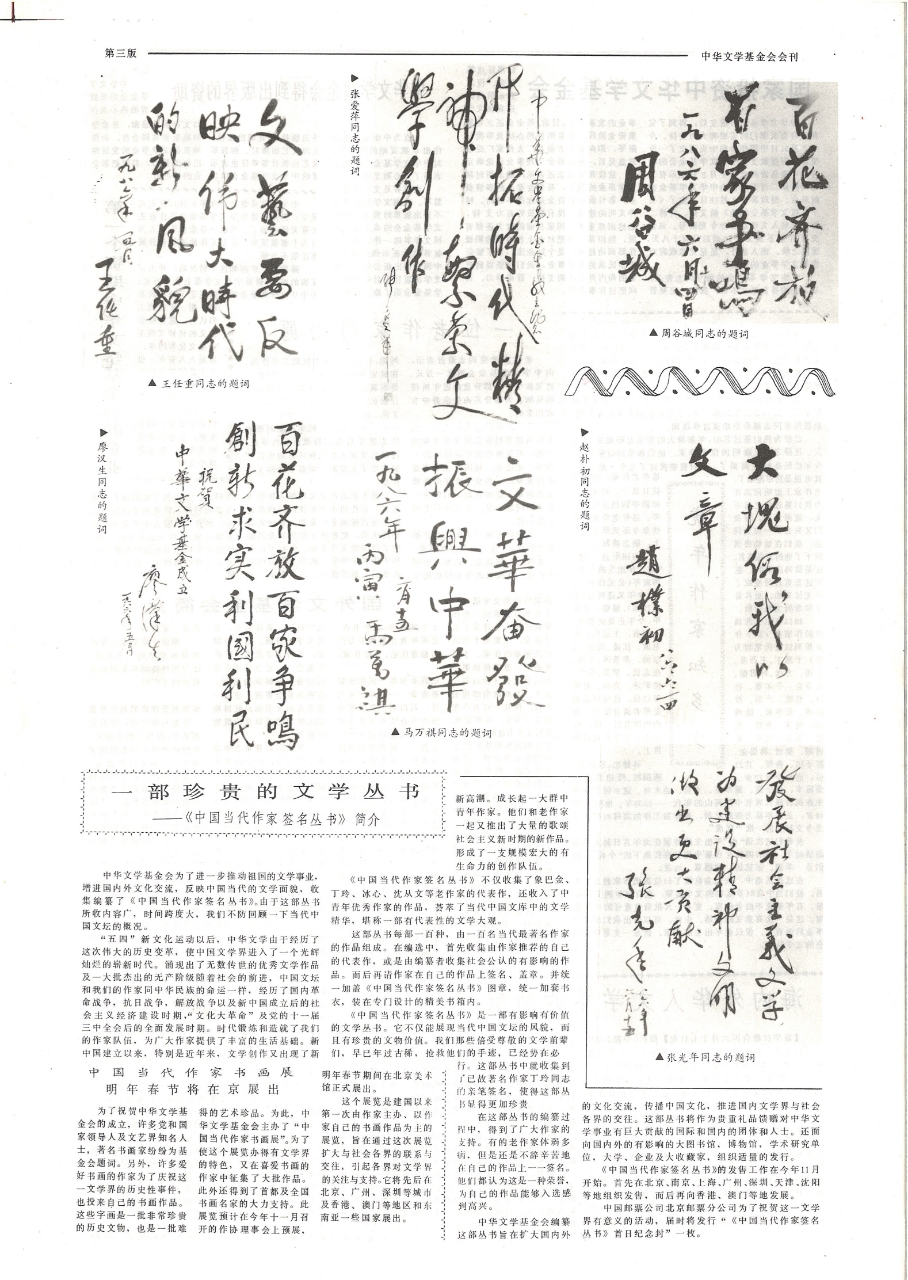 第三版
中华文学基金会会刊
百花齐放
百家争鸣
一九八六年六月四日
周谷城
▲周谷城同志的题词
▶张爱萍同志的题词
开拓時代精
神繁荣文
學創作
文藝要反
映伟大時代
的新风貌
一九八六年四月
王任重
▲王任重同志的题词
▶廖汉生同志的题词
百花齐放百家争鳴
創新求实利國利民
祝賀
中華文学基金成立
廖漢生
一九八六年五月
文華奋發
振興中華
一九八六年
丙寅
马萬祺
▲马万祺同志的题词
▶赵朴初同志的题词
大塊假我以
文章
趙樸初
▲张光年同志的题词
發展社会主義文学
为建设精神文明
做出更大贡献
张光年
一部珍贵的文学丛书
——《中国当代作家签名丛书》简介
中华文学基金会为了进一步推动祖国的文学事业,
增进国内外文化交流，反映中国当代的文学面貌，收
集编纂了《中国当代作家签名丛书》。由于这部丛书
所收内容广，时间跨度大，我们不防回顾一下当代中
国文坛的概况。
“五四”新文化运动以后，中华文学由于经历了
这次伟大的历史变革，使中国文学界进入了一个光辉
灿烂的崭新时代。涌现出了无数传世的优秀文学作品
及一大批杰出的无产阶级随着社会的前进，中国文坛
和我们的作家同中华民族的命运一样，经历了国内革
命战争，抗日战争，解放战争以及新中国成立后的社
会主义经济建设时期、“文化大革命”及党的十一届
三中全会后的全面发展时期。时代锻炼和造就了我们
的作家队伍，为广大作家提供了丰富的生活基础。新
中国建立以来，特别是近年来，文学创作又出现了新
新高潮。成长起一大群中
青年作家。他们和老作家
一起又推出了大量的歌颂
社会主义新时期的新作品。
形成了一支规模宏大的有
生命力的创作队伍。
《中国当代作家签名丛书》不仅收集了象巴金、
丁玲、冰心、沈从文等老作家的代表作，还收入了中
青年优秀作家的作品，荟萃了当代中国文库中的文学
精华，堪称一部有代表性的文学大观。
这部丛书每部一百种，由一百名当代最著名作家
的作品组成。在编选中，首先收集由作家推荐的自己
的代表作，或是由编纂者收集社会公认的有影响的作
品。而后再请作家在自己的作品上签名、盖章。并统
一加盖《中国当代作家签名丛书》图章，统一加套书
衣，装在专门设计的精美书箱内。
《中国当代作家签名丛书》是一部有影响有价值
的文学丛书。它不仅能展现当代中国文坛的风貌，而
且有珍贵的文物价值。我们那些倍受尊敬的文学前辈
们，早已年过古稀，抢救他们的手迹，已经势在必
行。这部丛书中就收集到
了已故著名作家丁玲同志
的亲笔签名，使得这部丛
书显得更加珍贵
在这部丛书的编纂过
程中，得到了广大作家的
支持。有的老作家体弱多
病，但是还是不辞辛苦地
在自己的作品上一一签名。
他们都认为这是一种荣誉,
为自己的作品能够入选感
到高兴。
中华文学基金会编纂
这部丛书旨在扩大国内外
的文化交流，传播中国文化，推进国内文学界与社会
各界的交往。这部丛书将作为贵重礼品馈赠对中华文
学事业有巨大贡献的国际和国内的团体和人士。还面
向国内外的有影响的大图书馆，博物馆，学术研究单
位，大学、企业及大收藏家，组织适量的发行。
《中国当代作家签名丛书》的发售工作在今年11月
开始。首先在北京、南京、上海、广州、深圳、天津、沈阳
等地组织发售，而后再向香港、澳门等地发展。
中国邮票公司北京邮票分公司为了祝贺这一文学
界有意义的活动，届时将发行“《中国当代作家签名
丛书》首日纪念封”一枚。
中国当代作家书画展
明年春节将在京展出
为了祝贺中华文学基
金会的成立，许多党和国
家领导人及文艺界知名人
士，著名书画家纷纷为基
金会题词。另外，许多爱
好书画的作家为了庆祝这
一文学界的历史性事件，
也投来自己的书画作品。
这些字画是一批非常珍贵
的历史文物，也是一批难
得的艺术珍品。为此，中
华文学基金会主办了“中
国当代作家书画展”。为了
使这个展览办得有文学界
的特色，又在喜爱书画的
作家中征集了大批作品。
此外还得到了首都及全国
书画名家的大力支持。此
展览预计在今年十一月召
开的作协理事会上预展、
明年春节期间在北京美术
馆正式展出。
这个展览是建国以来
第一次由作家主办、以作
家自己的书画作品为主的
展览，旨在通过这次展览
扩大与社会各界的联系与
交往，引起各界对文学界
的关注与支持。它将先后在
北京、广州、深圳等城市
及香港、澳门等地区和东
南亚一些国家展出。